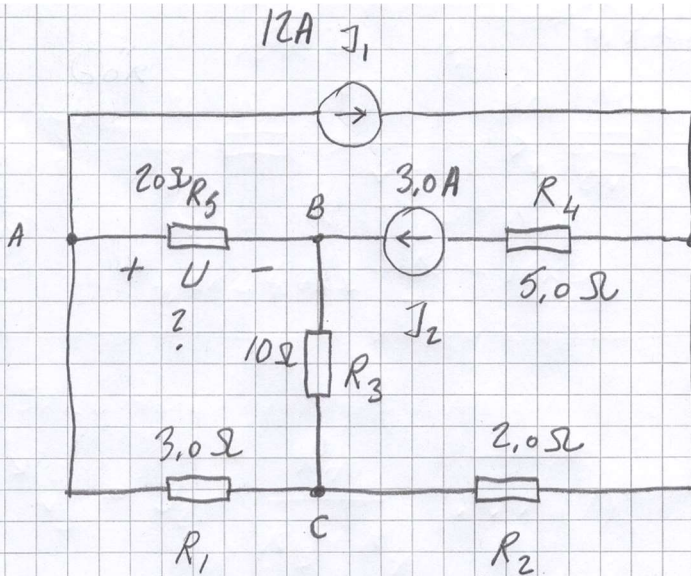 12A J₁
20Ω R₅
B
3,0A
R₄
A
+ U -
?
5,0Ω
J₂
10Ω
R₃
3,0Ω
2,0Ω
C
R₁
R₂